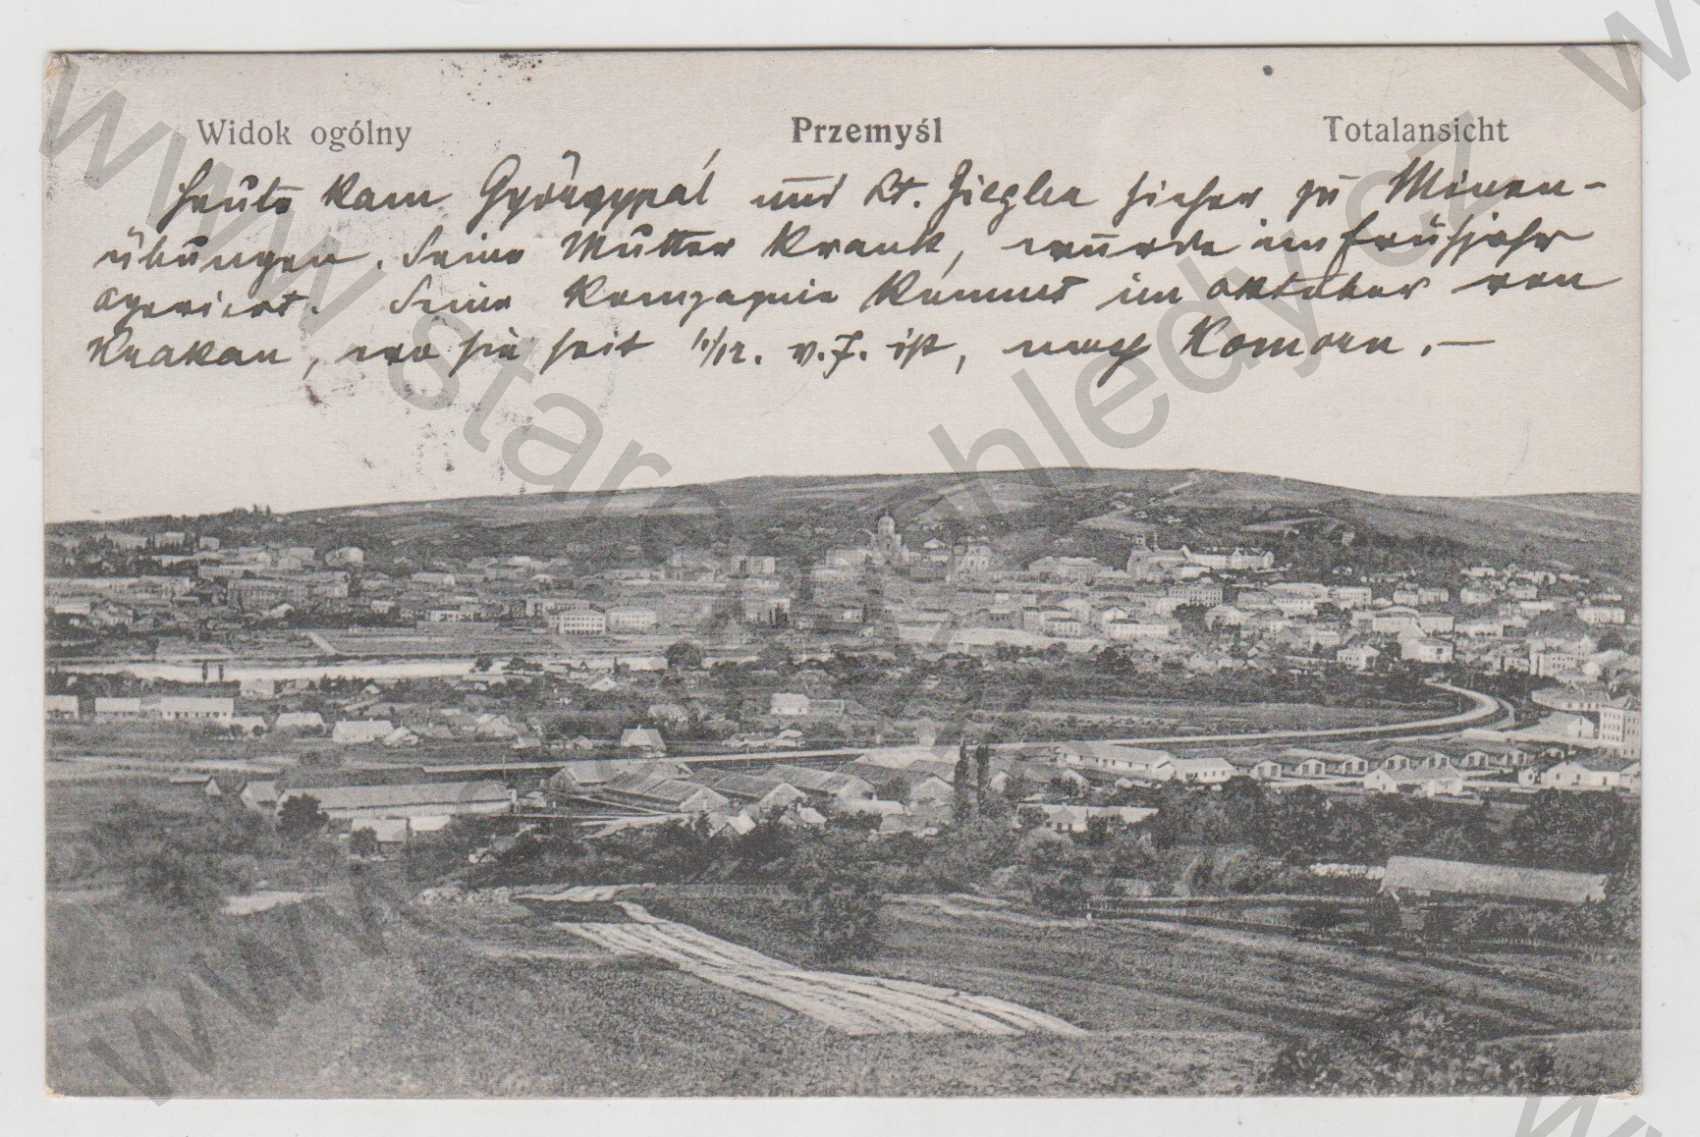 Widok ogólny Przemyśl Totalansicht
Heute kam Gyöngypál und Lt. Ziegler hieher zu Minen-
übungen. Seine Mutter krank, wurde im Frühjahr
operiert. Seine Kompagnie kommt im Oktober von
Krakau, wo sie seit 11/12. v. J. ist, nach Komorn. –
www.starepohledy.cz